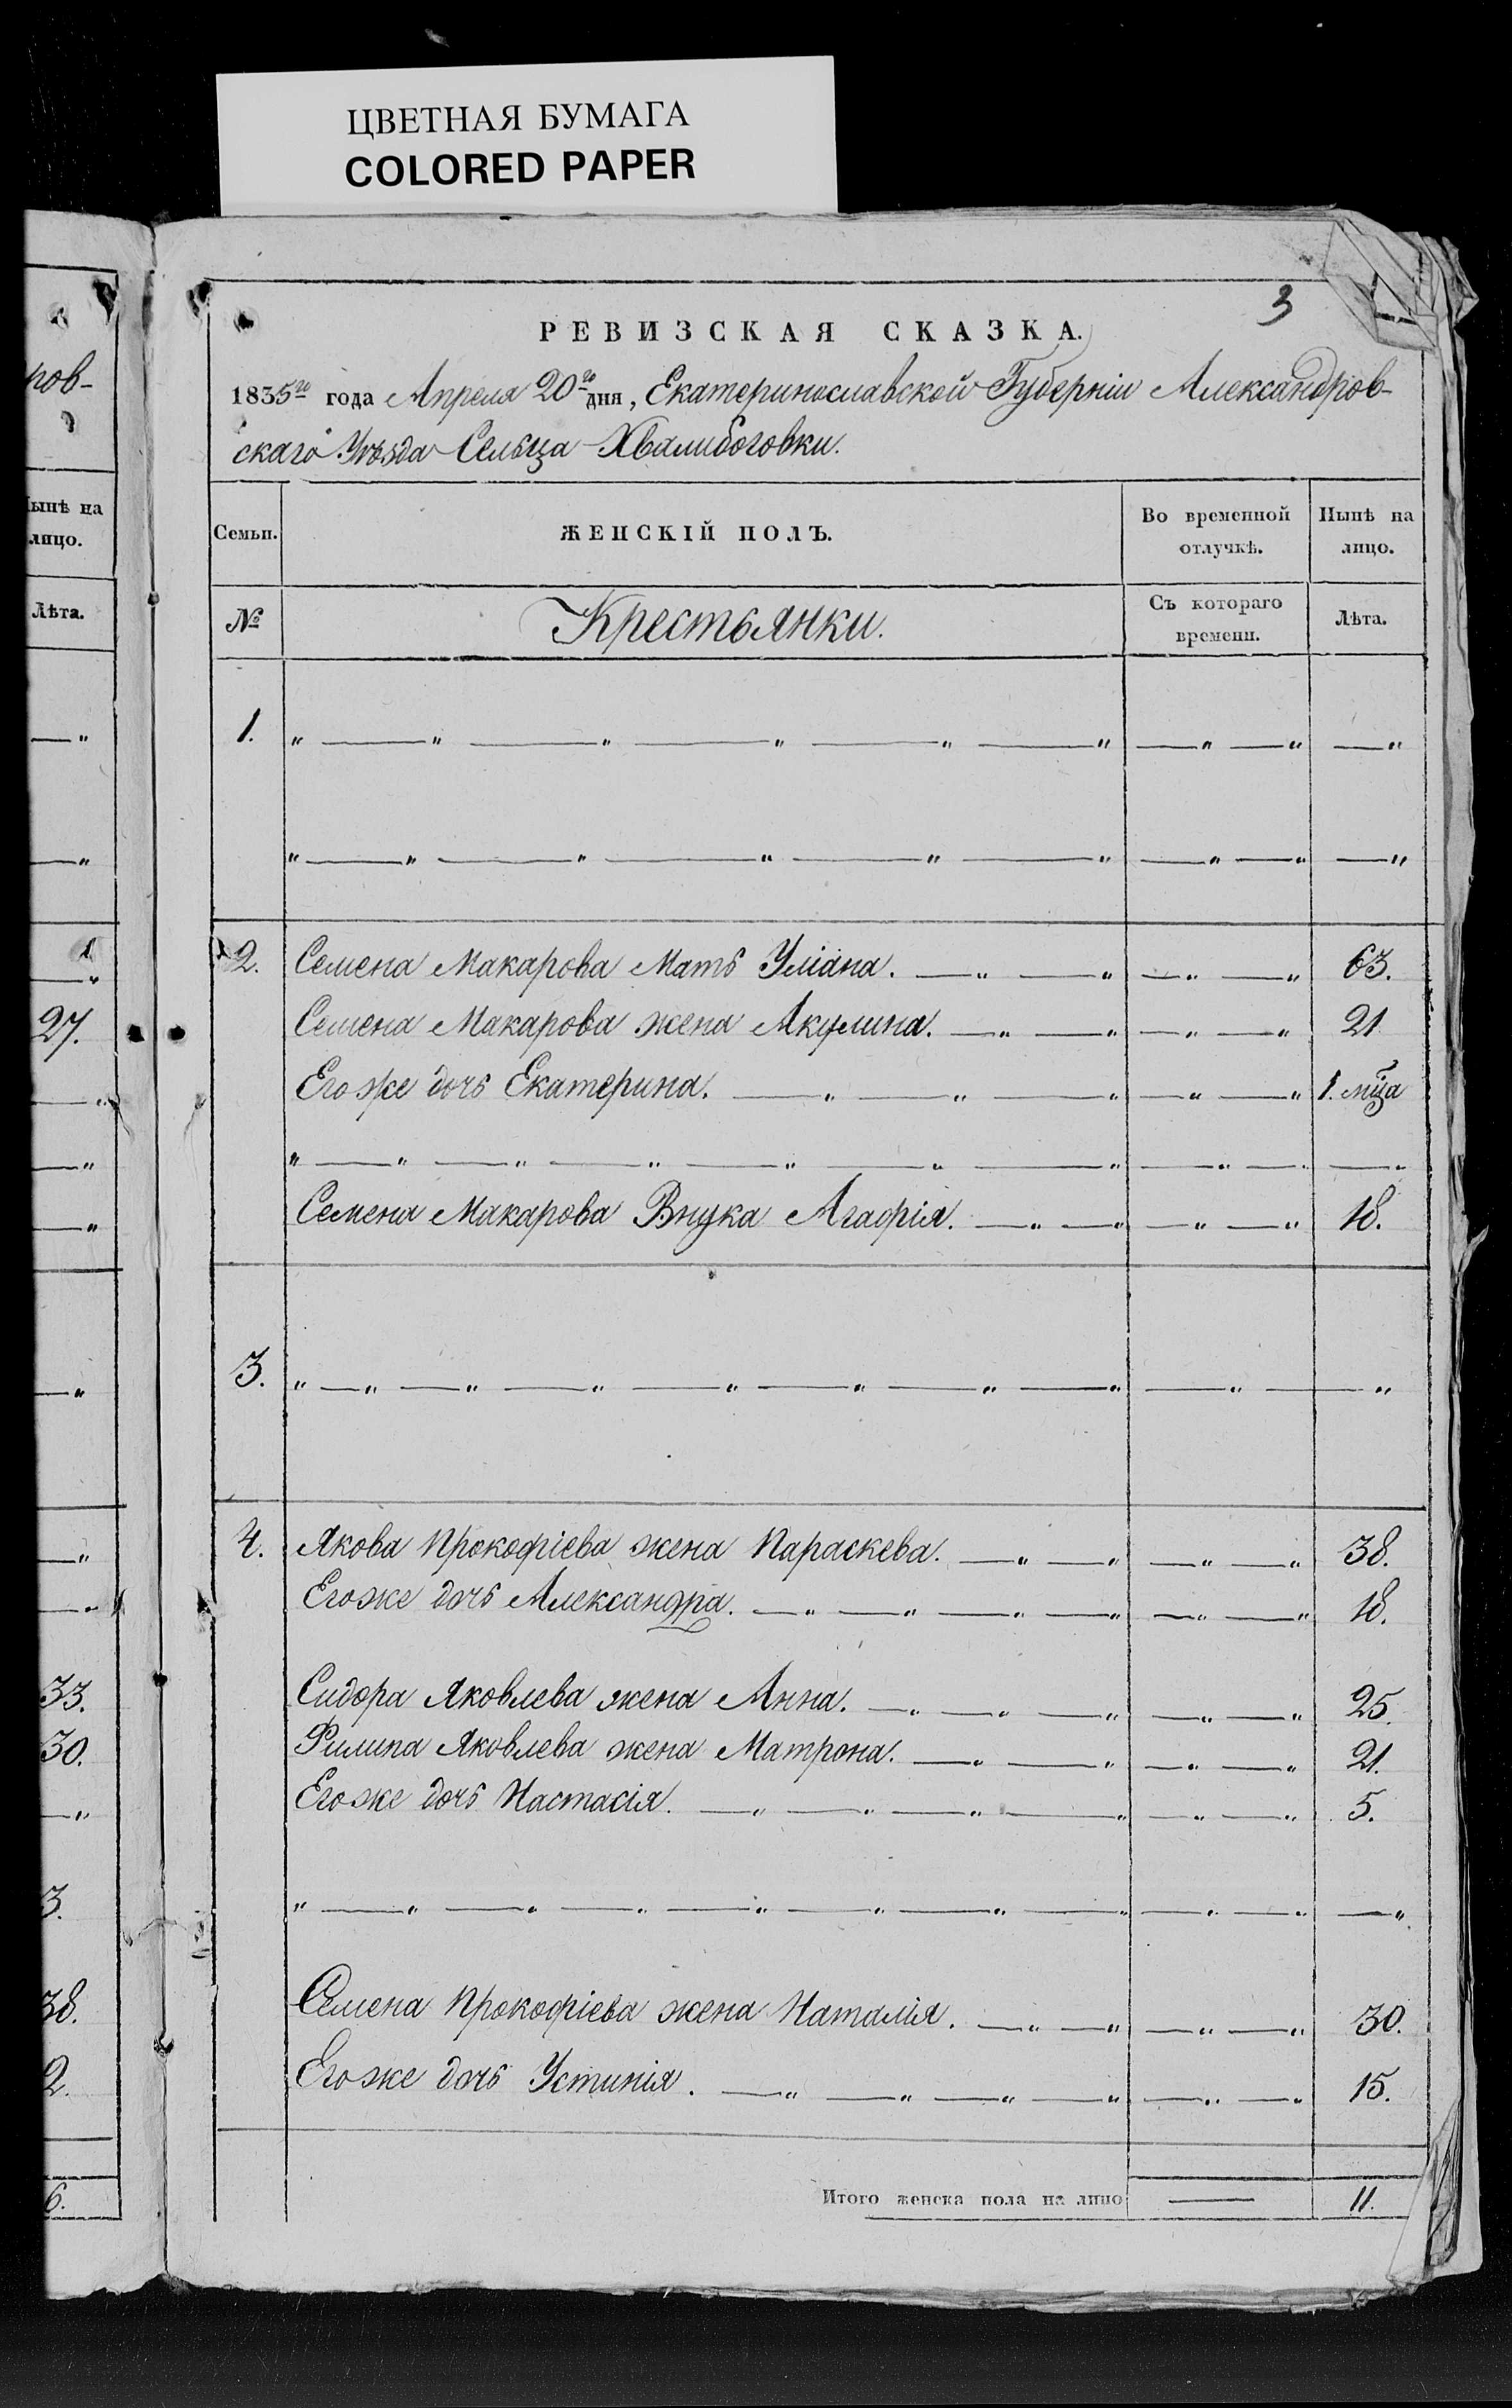 ЦВЕТНАЯ БУМАГА
COLORED PAPER
3
РЕВИЗСКАЯ СКАЗКА.
1835го года Апреля 20го дня, Екатеринославской Губерніи Александров-
скаго Уѣзда Сельца Хвалибоговки.
Семьи. ЖЕНСКІЙ ПОЛЪ. Во временной отлучкѣ. Нынѣ на лицо.
№ Крестьянки. Съ котораго времени. Лѣта.
1. „ — „ — „ — „ — „ — „ — „ — „ — „
„ — „ — „ — „ — „ — „ — „ — „ — „
2. Семена Макарова Мать Уліана. — „ — „ — „ — „ 63.
Семена Макарова жена Акулина. — „ — „ — „ — „ 21
Его же дочь Екатерина. — „ — „ — „ — „ — „ 1. мца
„ — „ — „ — „ — „ — „ — „ — „ — „
Семена Макарова Внука Агафія. — „ — „ — „ — „ 18.
3. „ — „ — „ — „ — „ — „ — „ — „ — „ — „
4. Якова Прокофіева жена Параскева. — „ — „ — „ — „ 38.
Егоже дочь Александра. — „ — „ — „ — „ — „ — „ 18.
Сидора Яковлева жена Анна. — „ — „ — „ — „ — „ 25.
Филипа Яковлева жена Матрона. — „ — „ — „ — „ 21.
Егоже дочь Настасія. — „ — „ — „ — „ — „ — „ 5.
„ — „ — „ — „ — „ — „ — „ — „ — „ — „ — „
Семена Прокофіева жена Наталія. — „ — „ — „ — „ 30.
Егоже дочь Устинія. — „ — „ — „ — „ — „ — „ 15.
Итого женска пола на лицо — 11.
ров-
Нынѣ на
лицо.
Лѣта.
— „
— „
1
— „
27.
— „
— „
— „
— „
— „
— „
33.
30.
— „
3.
38.
2.
6.